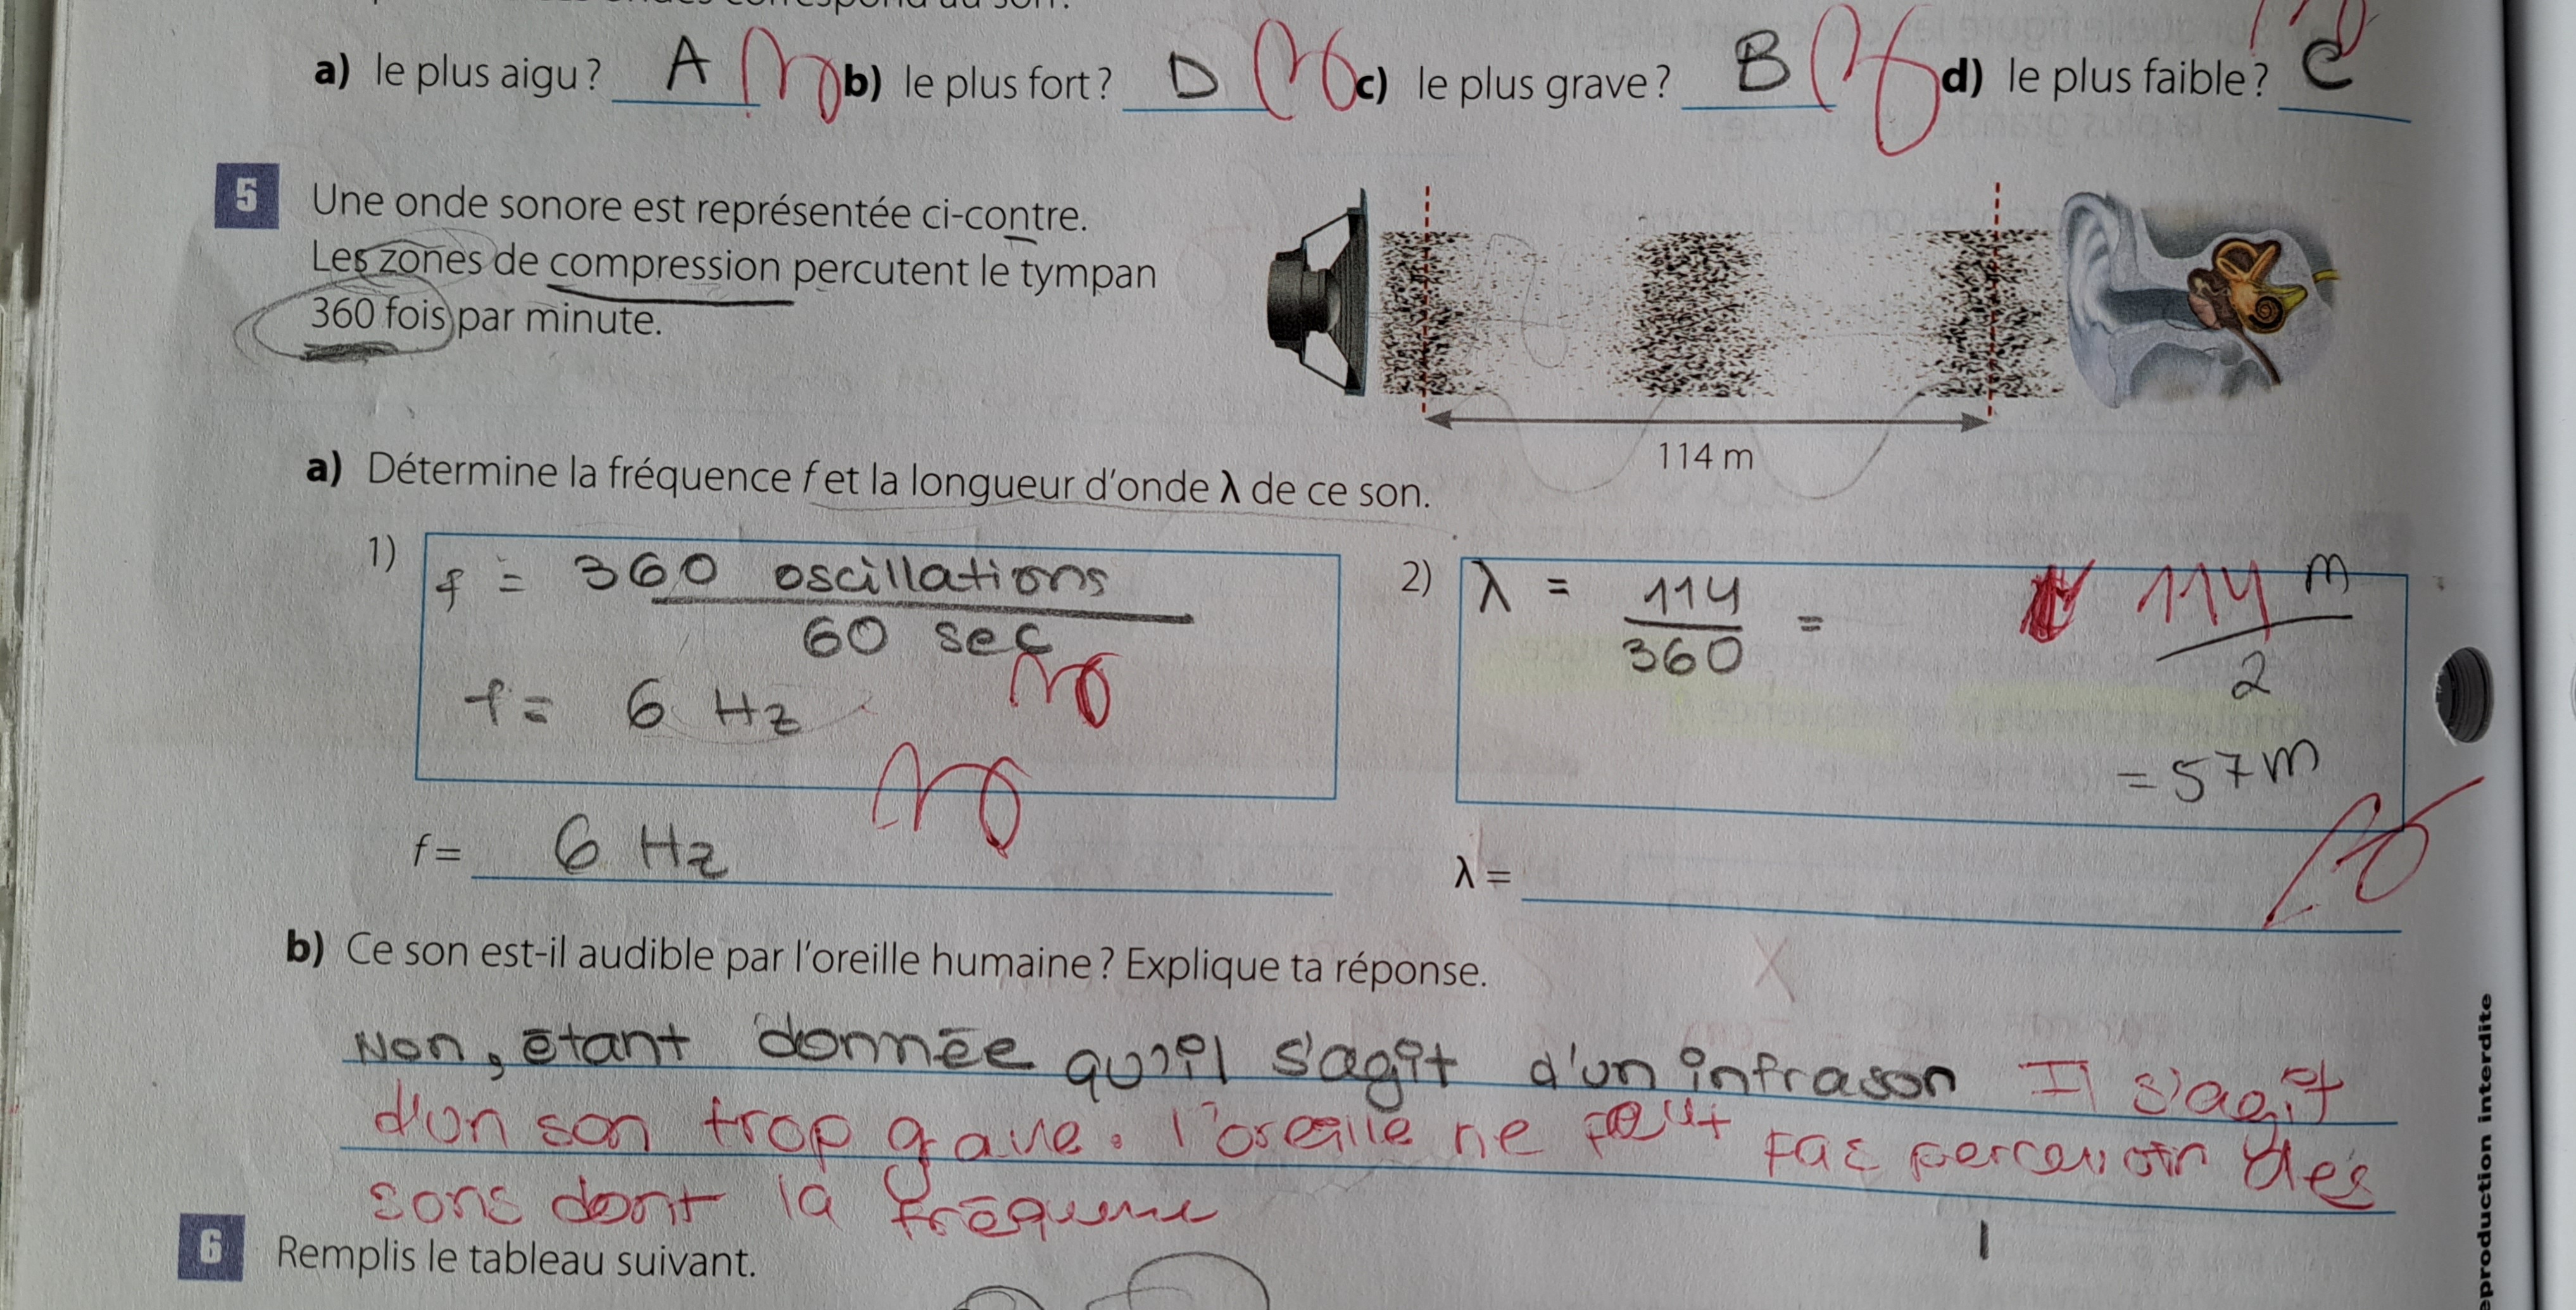 a) le plus aigu ? A b) le plus fort ? D c) le plus grave ? B d) le plus faible ? C
5 Une onde sonore est représentée ci-contre.
Les zones de compression percutent le tympan
360 fois par minute.
114 m
a) Détermine la fréquence f et la longueur d'onde λ de ce son.
1) f = 360 oscillations
60 sec
f = 6 Hz
2) λ = 114
360
= 114 m
2
= 57 m
f = 6 Hz
λ =
b) Ce son est-il audible par l'oreille humaine ? Explique ta réponse.
Non, étant donnée qu'il s'agit d'un infrason Il s'agit
d'un son trop grave. l'oreille ne peut pas percevoir des
sons dont la
6 Remplis le tableau suivant.
eproduction interdite